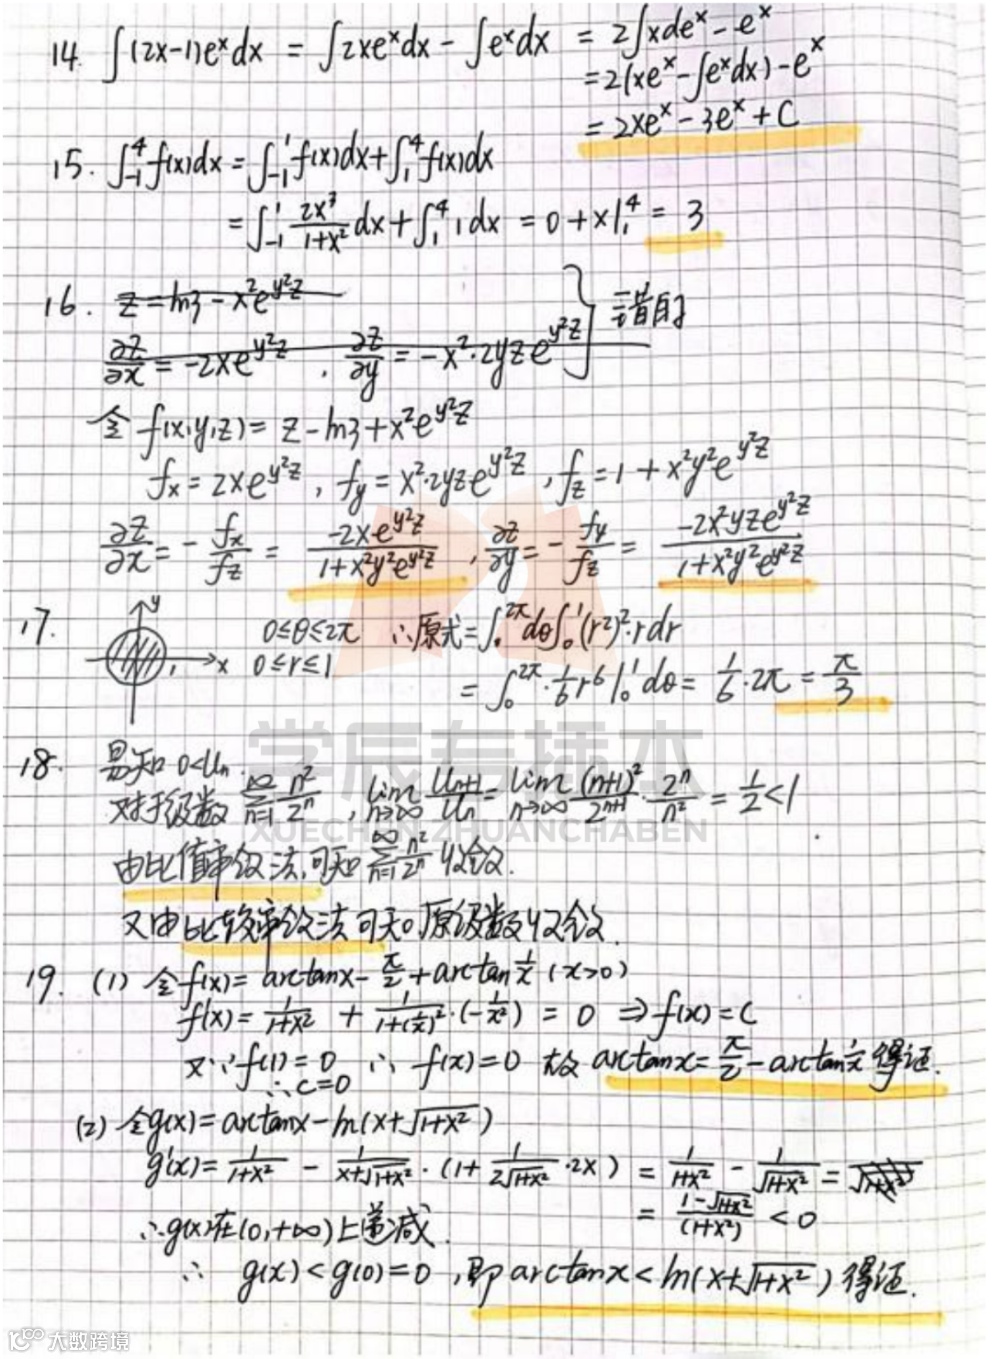 14. ∫(2x-1)e^x dx = ∫2xe^x dx - ∫e^x dx = 2∫xde^x - e^x
= 2(xe^x - ∫e^x dx) - e^x
= 2xe^x - 3e^x + C
15. ∫_{-1}^4 f(x)dx = ∫_{-1}^1 f(x)dx + ∫_1^4 f(x)dx
= ∫_{-1}^1 \frac{2x^3}{1+x^2} dx + ∫_1^4 1 dx = 0 + x|_1^4 = 3
16. z = ln3 - x^2e^{y^2z}
\frac{∂z}{∂x} = -2xe^{y^2z} , \frac{∂z}{∂y} = -x^2·2yze^{y^2z} } 错的
令 f(x,y,z) = z - ln3 + x^2e^{y^2z}
f_x = 2xe^{y^2z} , f_y = x^2·2yze^{y^2z} , f_z = 1 + x^2y^2e^{y^2z}
\frac{∂z}{∂x} = -\frac{f_x}{f_z} = \frac{-2xe^{y^2z}}{1+x^2y^2e^{y^2z}} , \frac{∂z}{∂y} = -\frac{f_y}{f_z} = \frac{-2x^2yze^{y^2z}}{1+x^2y^2e^{y^2z}}
17. y 1 x 0≤θ≤2π ∴原式 = ∫_0^{2π} dθ∫_0^1 (r^2)^2·rdr
0≤r≤1 = ∫_0^{2π} · \frac{1}{6}r^6|_0^1 dθ = \frac{1}{6}·2π = \frac{π}{3}
学辰专插本
XUECHEN ZHUANCHABEN
18. 易知 0<u_n.
对于级数 \sum_{n=1}^∞ \frac{n^2}{2^n} , \lim_{n→∞} \frac{u_{n+1}}{u_n} = \lim_{n→∞} \frac{(n+1)^2}{2^{n+1}} · \frac{2^n}{n^2} = \frac{1}{2} < 1
由比值审敛法,可知 \sum_{n=1}^∞ \frac{n^2}{2^n} 收敛.
又由比较审敛法可知原级数收敛.
19. (1) 令f(x) = arctanx - \frac{π}{2} + arctan\frac{1}{x} (x>0)
f'(x) = \frac{1}{1+x^2} + \frac{1}{1+(\frac{1}{x})^2}·(-\frac{1}{x^2}) = 0 ⇒ f(x) = C
又∵f(1) = 0 ∴ f(x) = 0 故 arctanx = \frac{π}{2} - arctan\frac{1}{x} 得证.
∴c=0
(2) 令g(x) = arctanx - ln(x+√(1+x^2))
g'(x) = \frac{1}{1+x^2} - \frac{1}{x+√(1+x^2)} · (1+\frac{1}{2√(1+x^2)}·2x) = \frac{1}{1+x^2} - \frac{1}{√(1+x^2)} =
= \frac{1-√(1+x^2)}{(1+x^2)} < 0
∴g(x)在(0,+∞)上递减.
∴ g(x) < g(0) = 0 ,即 arctanx < ln(x+√(1+x^2)) 得证.
大数跨境